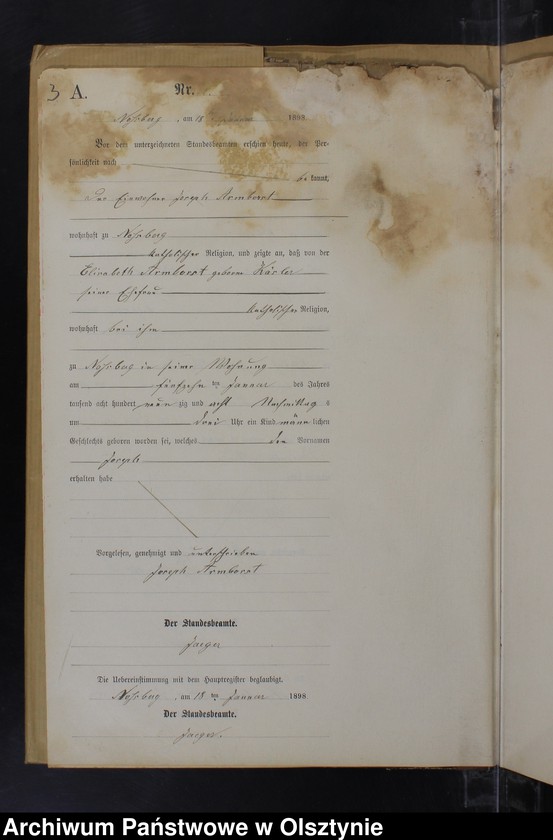 3 A.
Nr.
Noßberg, am 18 1898
Vor dem unterzeichneten Standesbeamten erschien heute, der Per-
sönlichkeit nach
be kannt,
Der Einwohner Joseph Armborst
wohnhaft zu Noßberg
katholischer Religion, und zeigte an, daß von der
Elisabeth Armborst geborene
seiner Ehefrau
katholischer Religion,
wohnhaft bei ihm
zu Noßberg in seiner Wohnung
am fünfzehn ten Januar des Jahres
tausend acht hundert neun zig und acht Nachmittag s
um drei Uhr ein Kind männ lichen
Geschlechts geboren worden sei, welches den Vornamen
Joseph
erhalten habe
Vorgelesen, genehmigt und unterschrieben
Joseph Armborst
Der Standesbeamte.
Jaeger
Die Uebereinstimmung mit dem Hauptregister beglaubigt.
Noßberg, am 18 ten Januar 1898
Der Standesbeamte.
Jaeger.
Archiwum Państwowe w Olsztynie